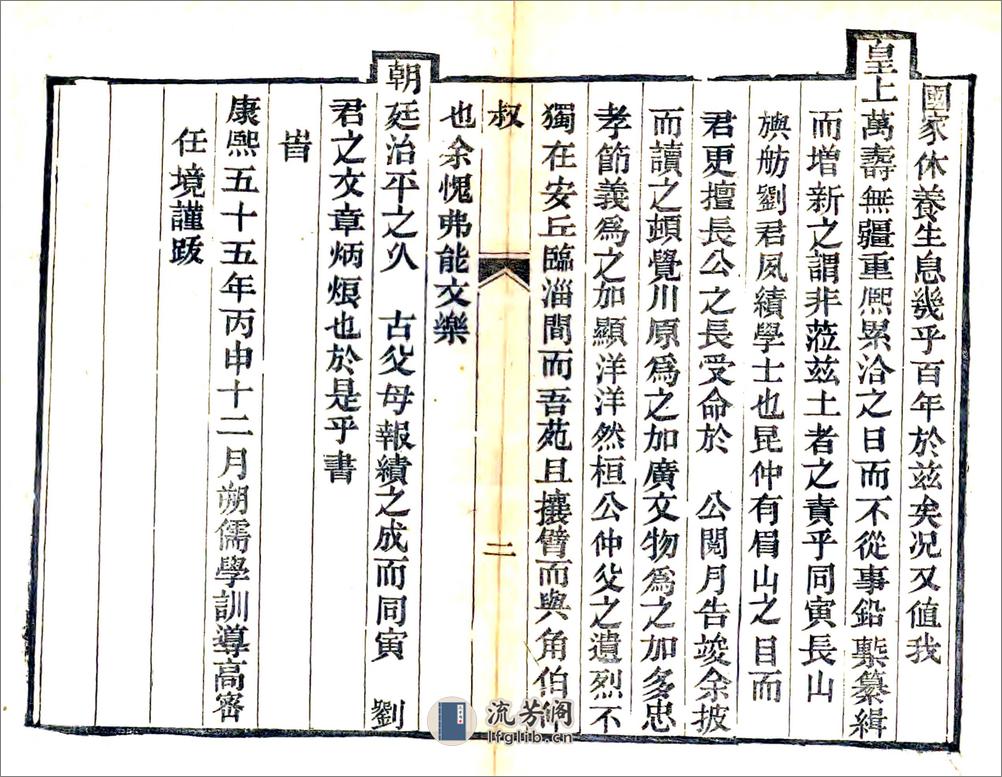 國家休養生息幾乎百年於茲矣况又值我
皇上萬壽無疆重熈累洽之日而不從事鉛槧纂緝
而增新之謂非蒞茲土者之責乎同寅長山
旟舫劉君夙績學士也昆仲有眉山之目而
君更擅長公之長受命於 公閱月告竣余披
而讀之頓覺川原為之加廣文物為之加多忠
孝節義為之加顯洋洋然桓公仲父之遺烈不
獨在安丘臨淄間而吾苑且攘臂而與角伯
叔
也余愧弗能文樂
朝廷治平之久 古父母報績之成而同寅 劉
君之文章炳烺也於是乎書
旹
康熙五十五年丙申十二月朔儒學訓導高密
任境謹跋
二
流芳阁
lfglib.cn